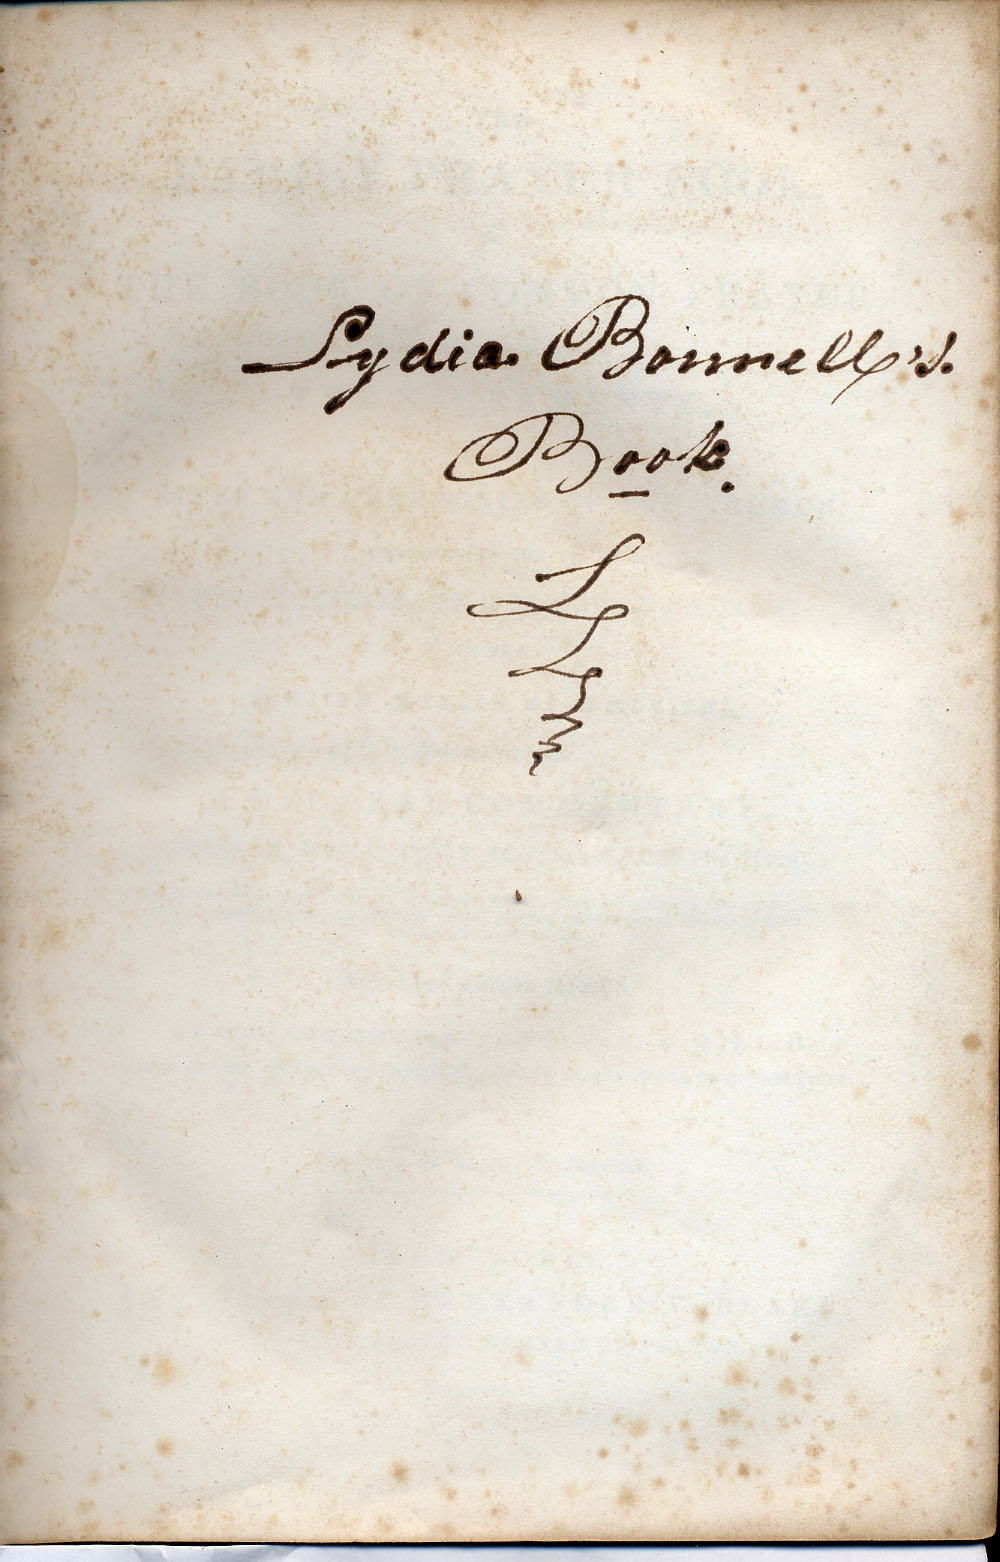 Lydia Bonnell's.
Book.